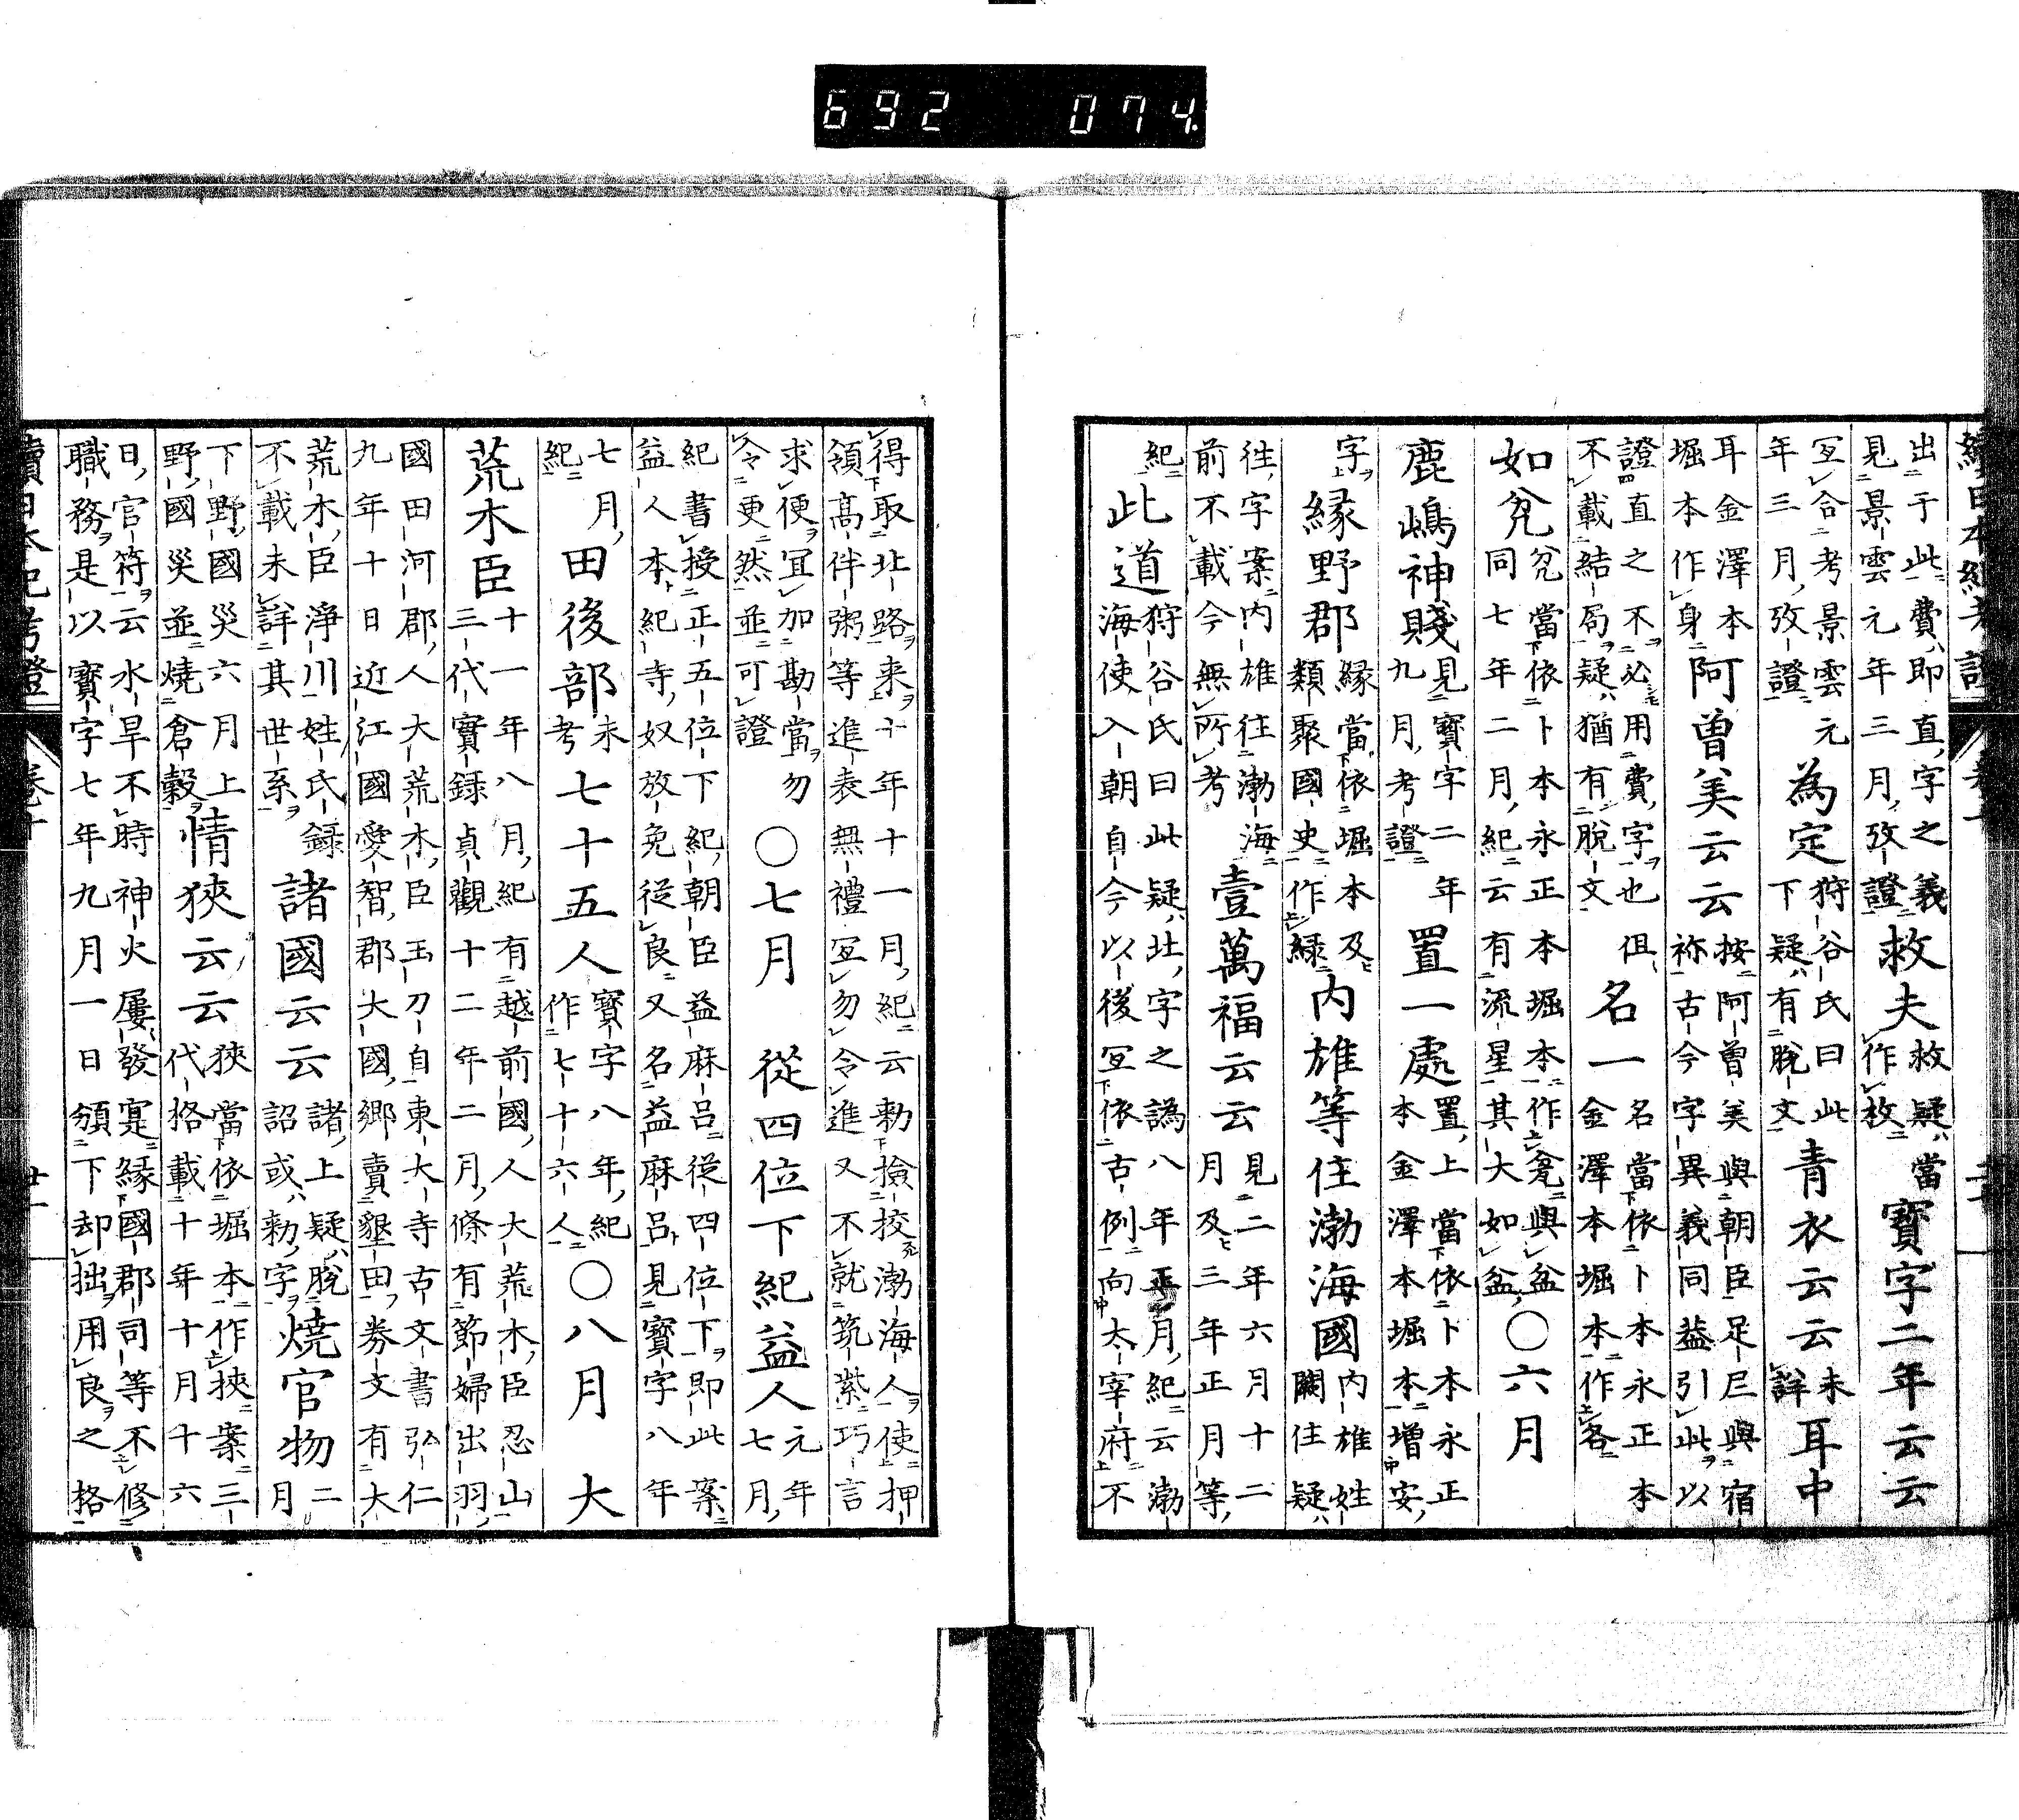 692 074.
出于此費即直字之義
見景雲元年三月攷證
救夫
救疑當
作枚
寶字二年云云
宜合考景雲元
年三月攷證
為定
狩谷氏曰此
下疑有脫文
青衣云云
未
詳
耳中
耳金澤本
堀本作身
阿曽美云云
按阿曽美與朝臣足尼與宿
祢古今字異義同葢引此以
證直之不必用費字也
不載結局疑猶有脫文
但
名一
名當依卜本永正本
金澤本堀本作各
如兊
兊當依卜本永正本堀本作瓫與盆
同七年二月紀云有流星其大如盆
〇六月
鹿嶋神賤
見寶字二年
九月考證
置一處
置上當依卜本永正
本金澤本堀本増安
字
縁野郡
縁當依堀本及
類聚國史作緑
内雄等住渤海國
内雄姓
闕住疑
往字案内雄往渤海
前不載今無所考
壹萬福云云
見二年六月十二
月及三年正月等
紀
此道
狩谷氏曰此疑北字之譌八年正月紀云渤
海使入朝自今以後宜依古例向太宰府不
得取北路来十年十一月紀云勅撿挍渤海人使押
領高伴粥等進表無禮宜勿令進又不就筑紫巧言
求便宜加勘當勿
令更然並可證
〇七月
從四位下紀益人
元年
七月
紀書授正五位下紀朝臣益麻呂從四位下即此案
益人本紀寺奴放免從良又名益麻呂見寶字八年
七月
紀
田後部
未
考
七十五人
寶字八年紀
作七十六人
〇八月
大
荒木臣
十一年八月紀有越前國人大荒木臣忍山
三代實録貞觀十二年二月條有節婦出羽
國田河郡人大荒木臣玉刀自東大寺古文書弘仁
九年十日近江國愛智郡大國郷賣墾田券文有大
荒木臣淨川姓氏録
不載未詳其世系
諸國云云
諸上疑脫
詔或勅字
燒官物
二
月
下野國災六月上
野國災並燒倉穀
情狹云云
狹當依堀本作挾案三
代格載十年十月十六
日官符云水旱不時神火屢發寔縁國郡司等不修
職務是以寶字七年九月一日頒下却拙用良之格